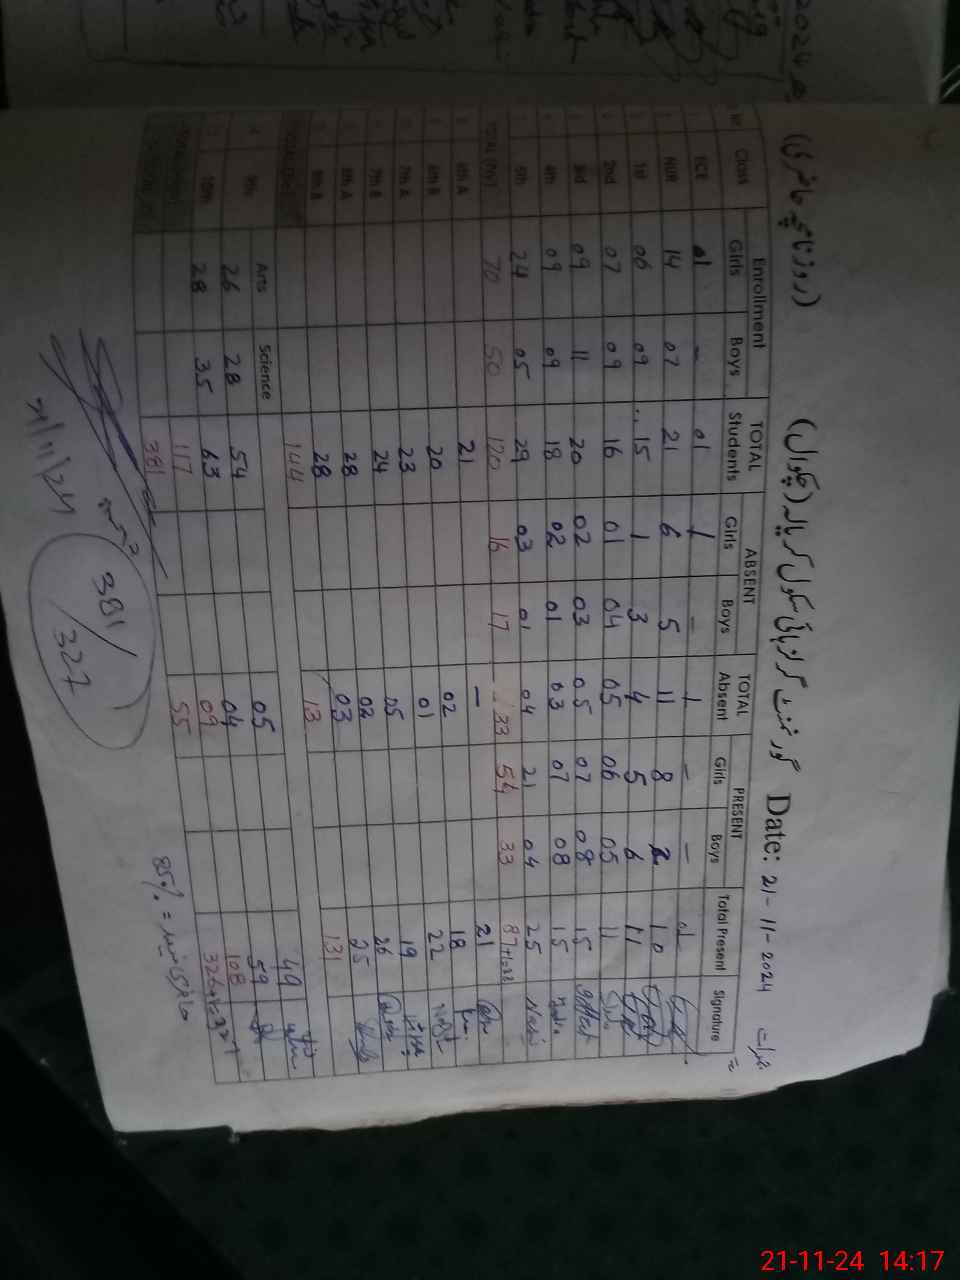 2024
(روزنامچہ حاضری)
گورنمنٹ گرلز ہائی سکول کریالہ (چکوال) Date: 21-11-2024
Class Enrollment TOTAL ABSENT TOTAL PRESENT Total Present Signature
Girls Boys Students Girls Boys Absent Girls Boys
ECE 01 - 01 1 - 1 - - 01
NUR 14 07 21 6 5 11 8 2 10
1st 06 09 15 1 3 4 5 6 11
2nd 07 09 16 01 04 05 06 05 11
3rd 09 11 20 02 03 05 07 08 15
4th 09 09 18 02 01 03 07 08 15
5th 24 05 29 03 01 04 21 04 25
TOTAL (Pri) 70 50 120 16 17 33 54 33 87+1=88
6th A 21 - 21
6th B 20 02 18
7th A 23 01 22
7th B 24 05 19
8th A 28 02 26
8th B 28 03 25
TOTAL 144 13 131
Arts Science
9th 26 28 54 05 49
10th 28 35 63 04 59
117 09 108
381 55 326+1=327
85% = حاضری فیصد
381/327
21/11/24
21-11-24 14:17